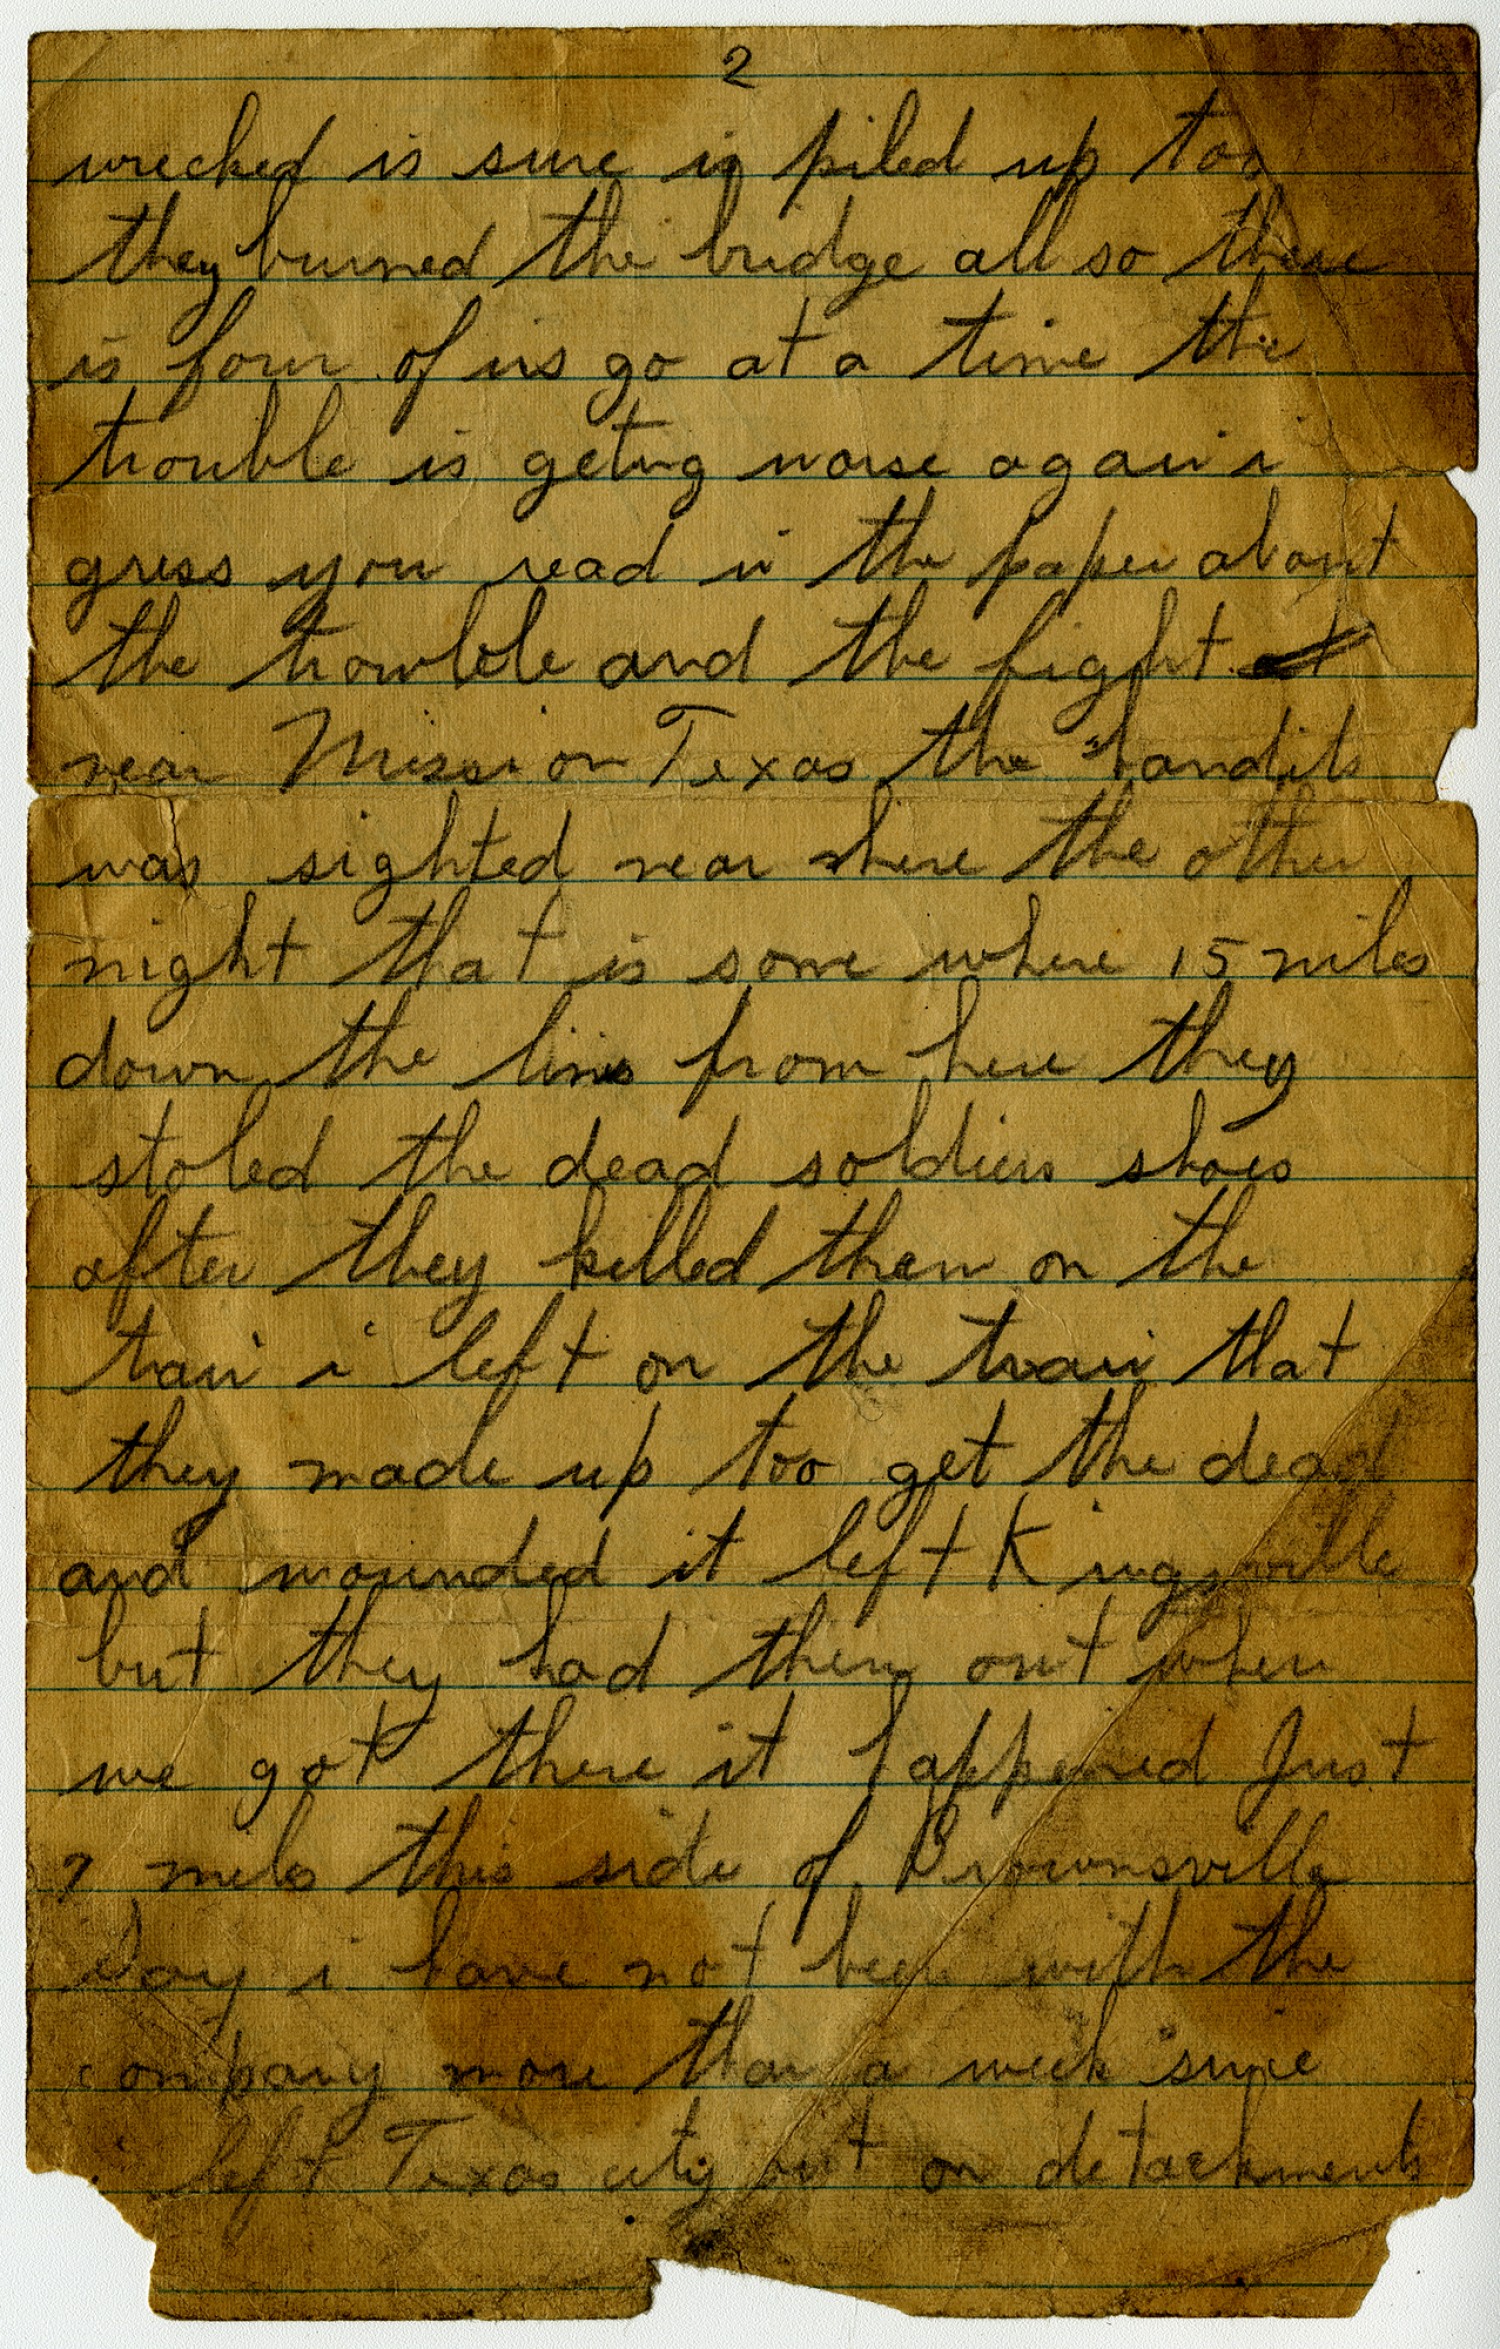 2
wrecked is sure is piled up too
they burned the bridge all so there
is four of us go at a time the
trouble is geting worse again i
gress you read in the paper about
the trowble and the fight
near Mission Texas the bandits
was sighted near here the other
night that is some where 15 miles
down the line from here they
stoled the dead soldiers shoes
after they killed them on the
train i left on the train that
they made up too get the dead
and wounded it left Kingsville
but they had them out when
we got there it happened Just
7 miles this side of Brownsville
Say i have not been with the
company more than a week since
i left Texas city out on detachments